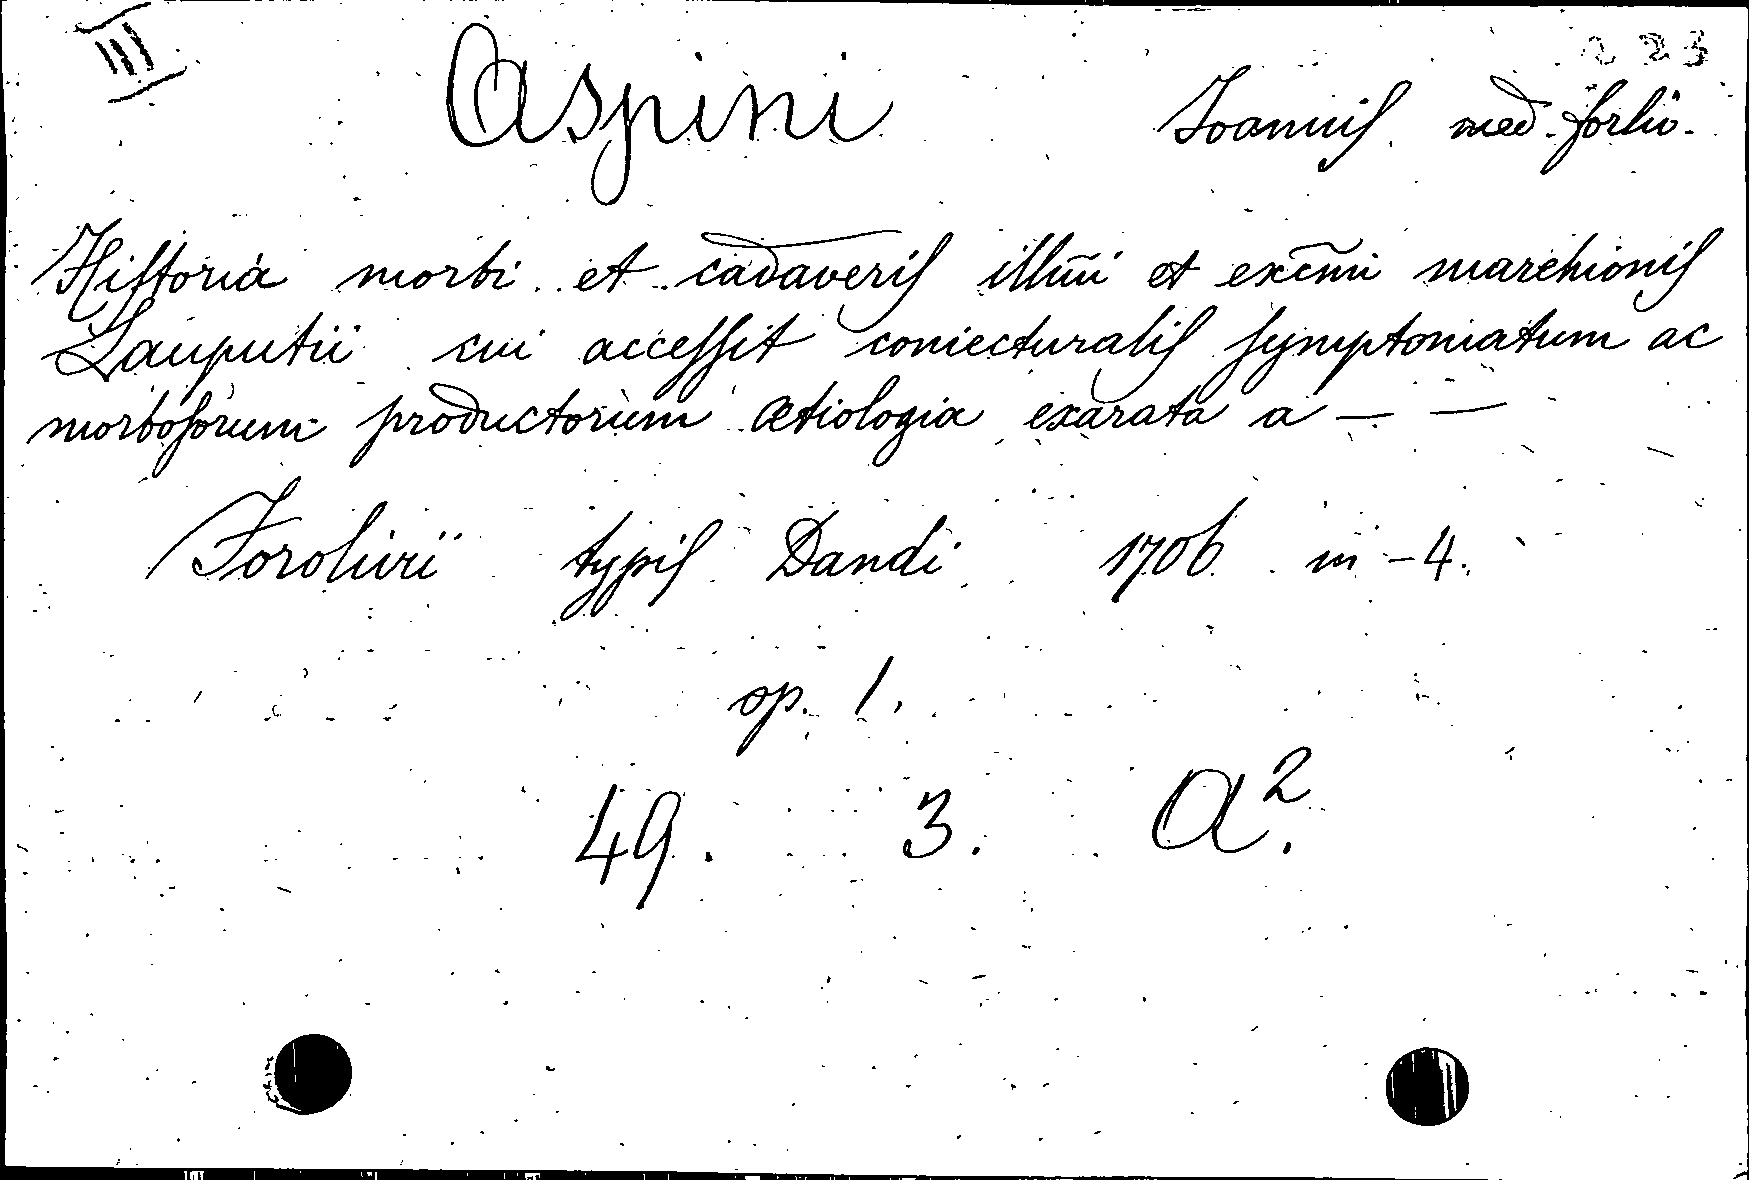 III
223
Aspini Joannis med. forliv.
Historia morbi et cadaveris illm̄i et excm̄i marchionis
Lauputii cui accessit coniecturalis symptomatum ac
morbosorum productorum ætiologia exarata a — —
Forolivii typis Dandi 1706 in-4.
op. 1.
49. 3. A².